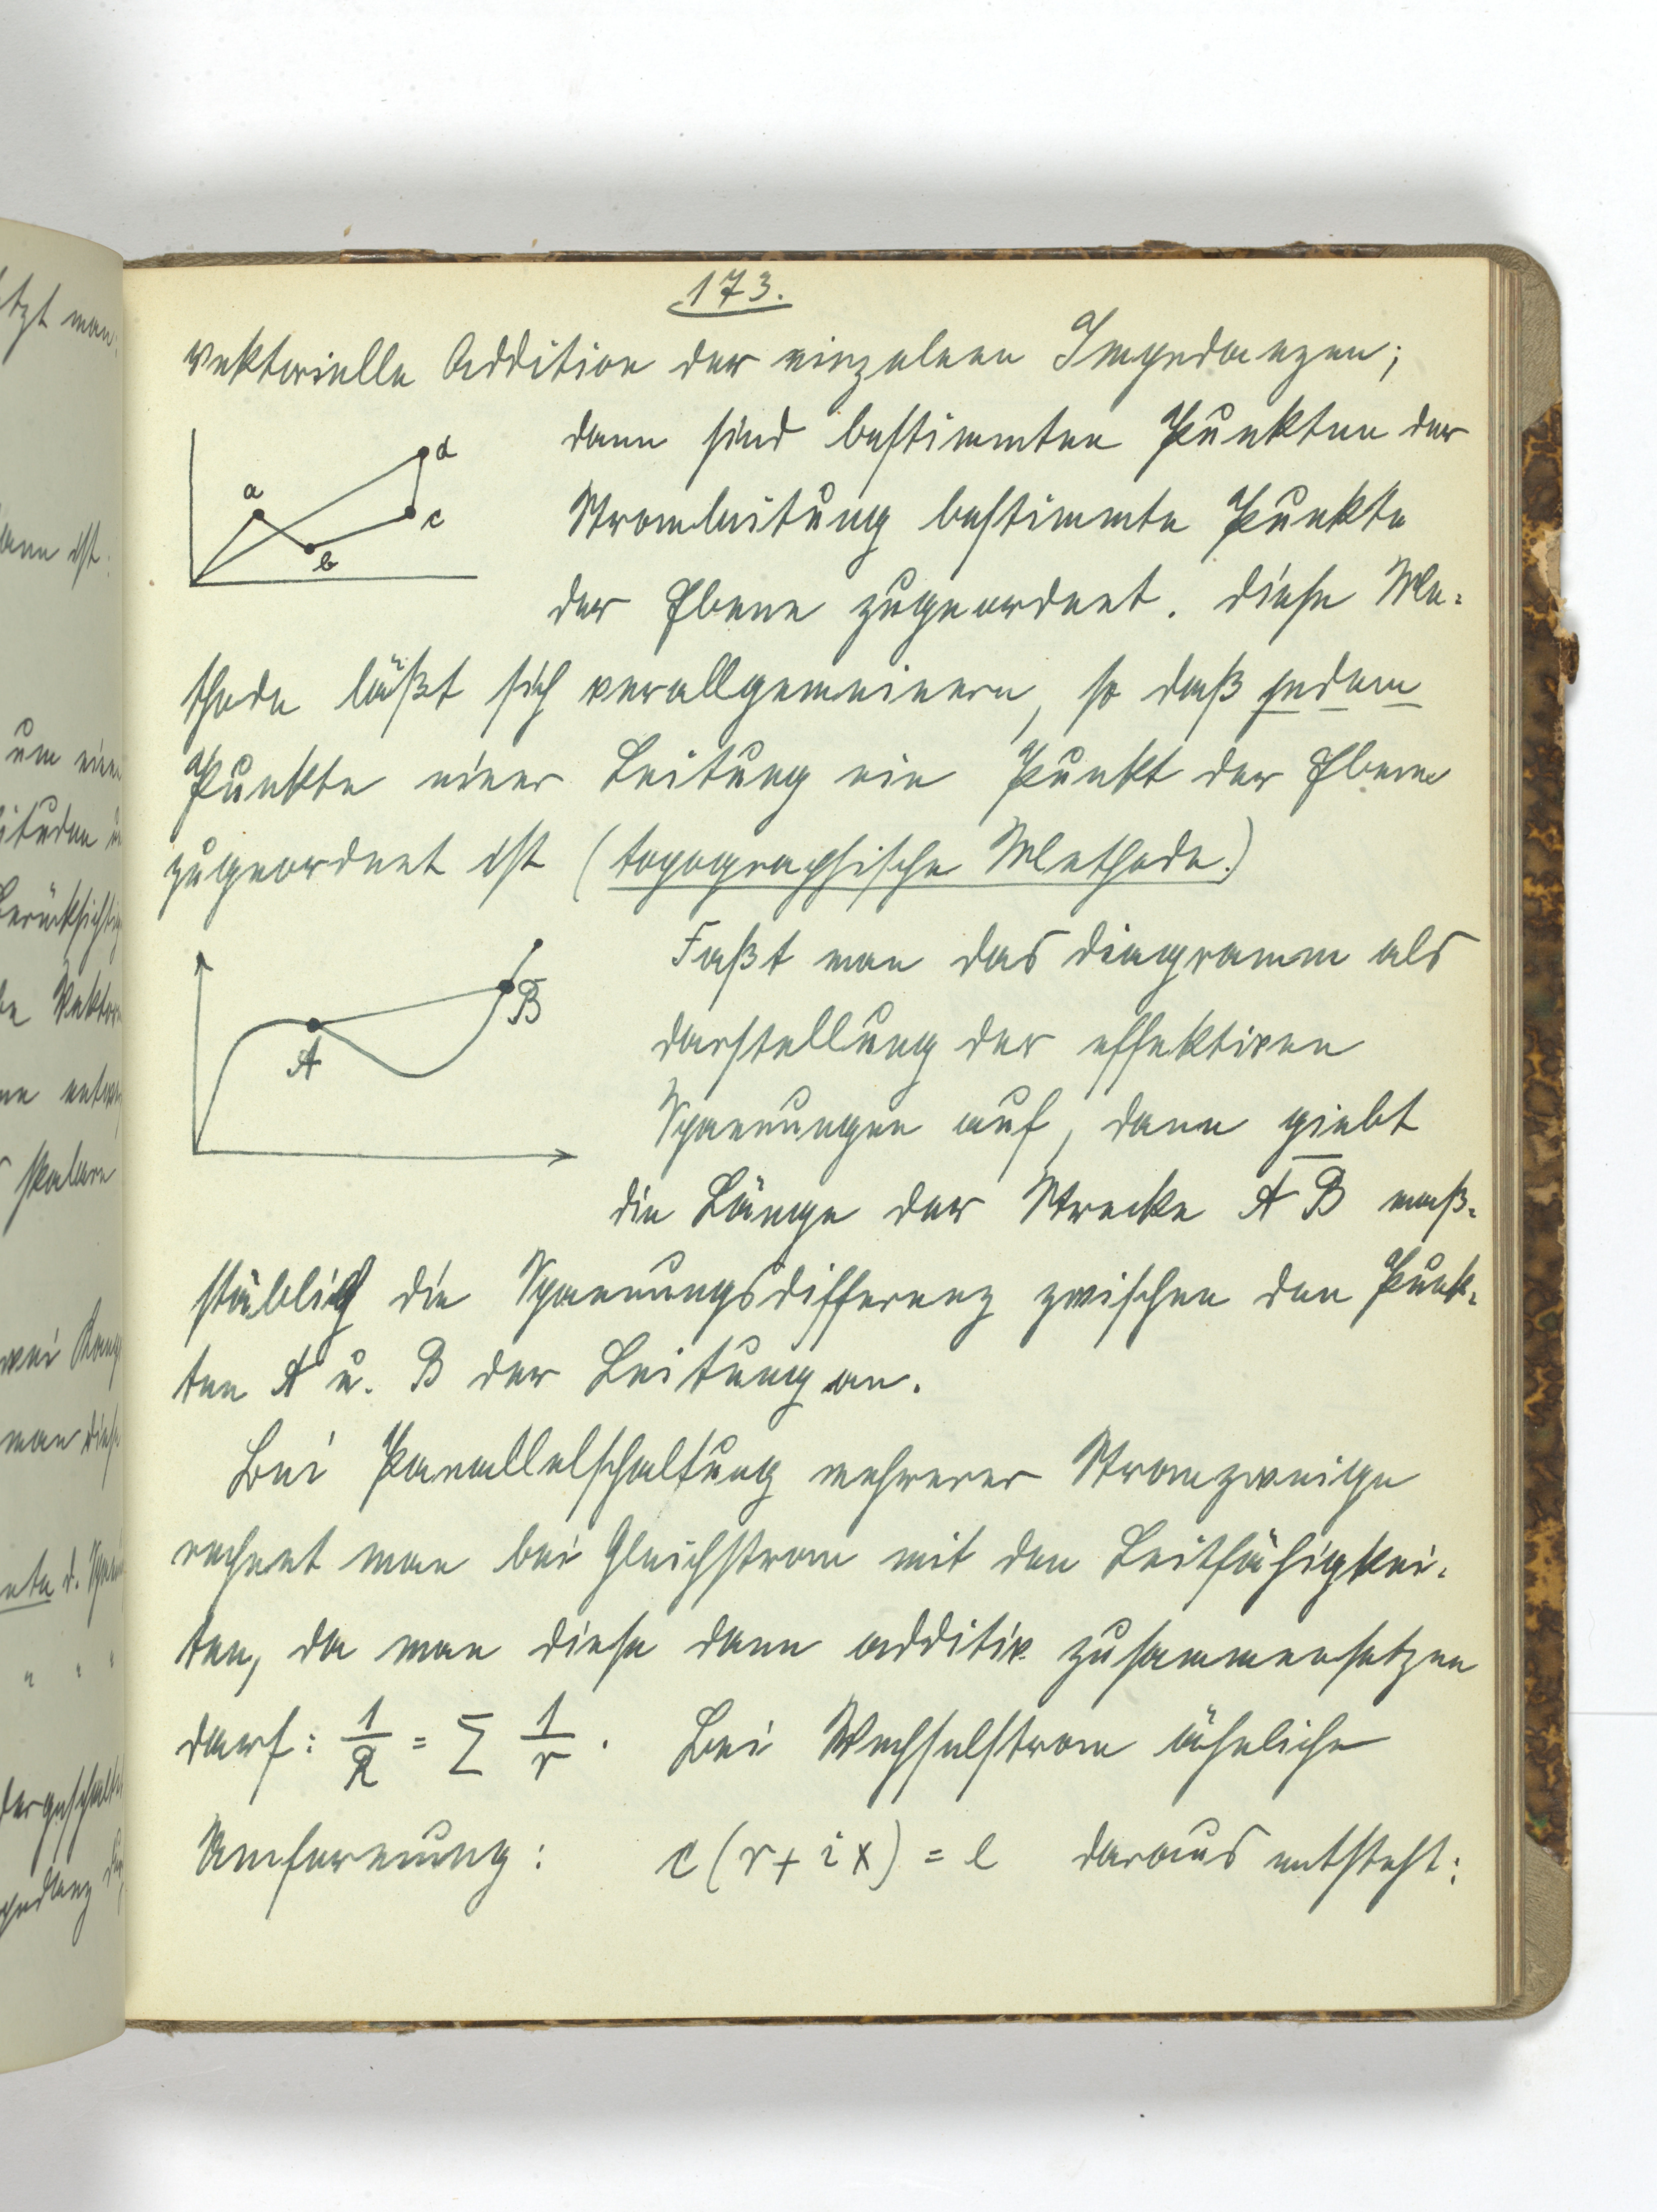 173.
vektorielle Addition der einzelnen Impedanzen;
dann sind bestimmten Punkten der
Stromleitung bestimmte Punkte
der Ebene zugeordnet. Diese Me-
thode läßt sich verallgemeinern, so daß jedem
Punkte einer Leitung ein Punkt der Ebene
zugeordnet ist (topographische Methode.)
Faßt man das Diagramm als
Darstellung der effektiven
Spannungen auf, dann giebt
die Länge der Strecke A B maß-
stäblich die Spannungsdifferenz zwischen den Punk-
ten A u. B der Leitung an.
Bei Parallelschaltung mehrerer Stromzweige
rechnet man bei Gleichstrom mit den Leitfähigkei-
ten, da man diese dann additiv zusammensetzen
darf: 1/R = Σ 1/r . Bei Wechselstrom ähnliche
Umformung: c (r + i x) = e daraus entsteht:
a
b
c
d
A
B
tzt man:
ann ist:
um einen
itüden
Berücksichtig
Vektor
skalare
zwei
man diese